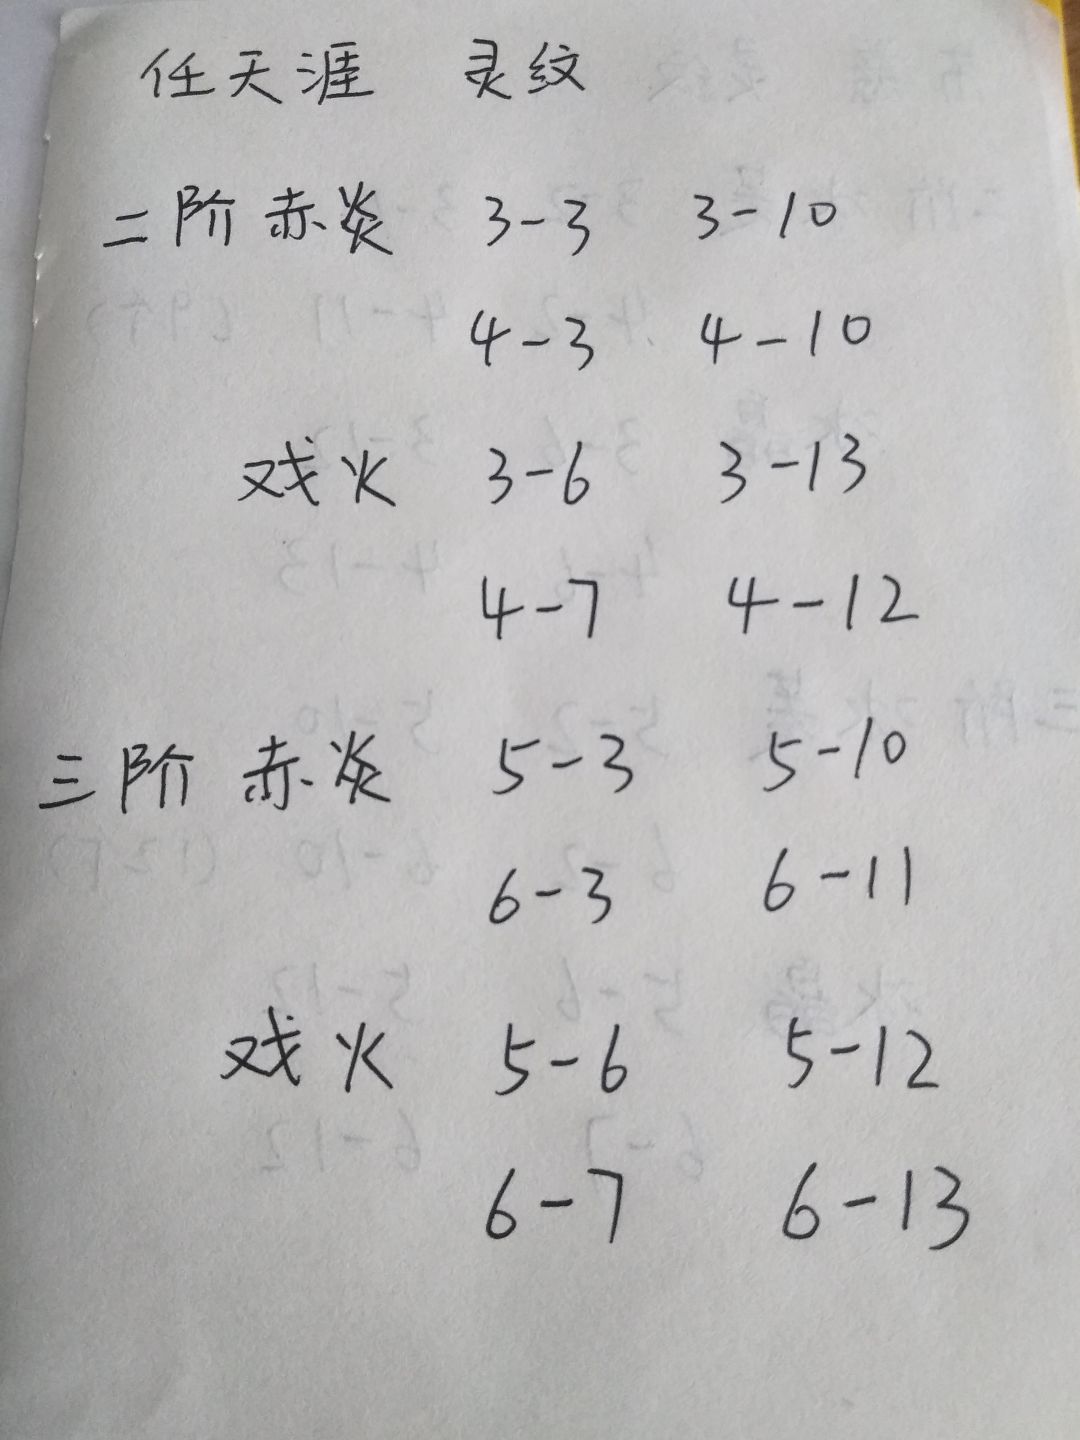 任天涯 灵纹
二阶 赤炎 3-3 3-10
4-3 4-10
戏火 3-6 3-13
4-7 4-12
三阶 赤炎 5-3 5-10
6-3 6-11
戏火 5-6 5-12
6-7 6-13